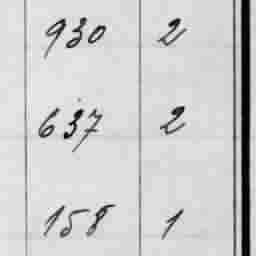 930 2
637 2
158 1